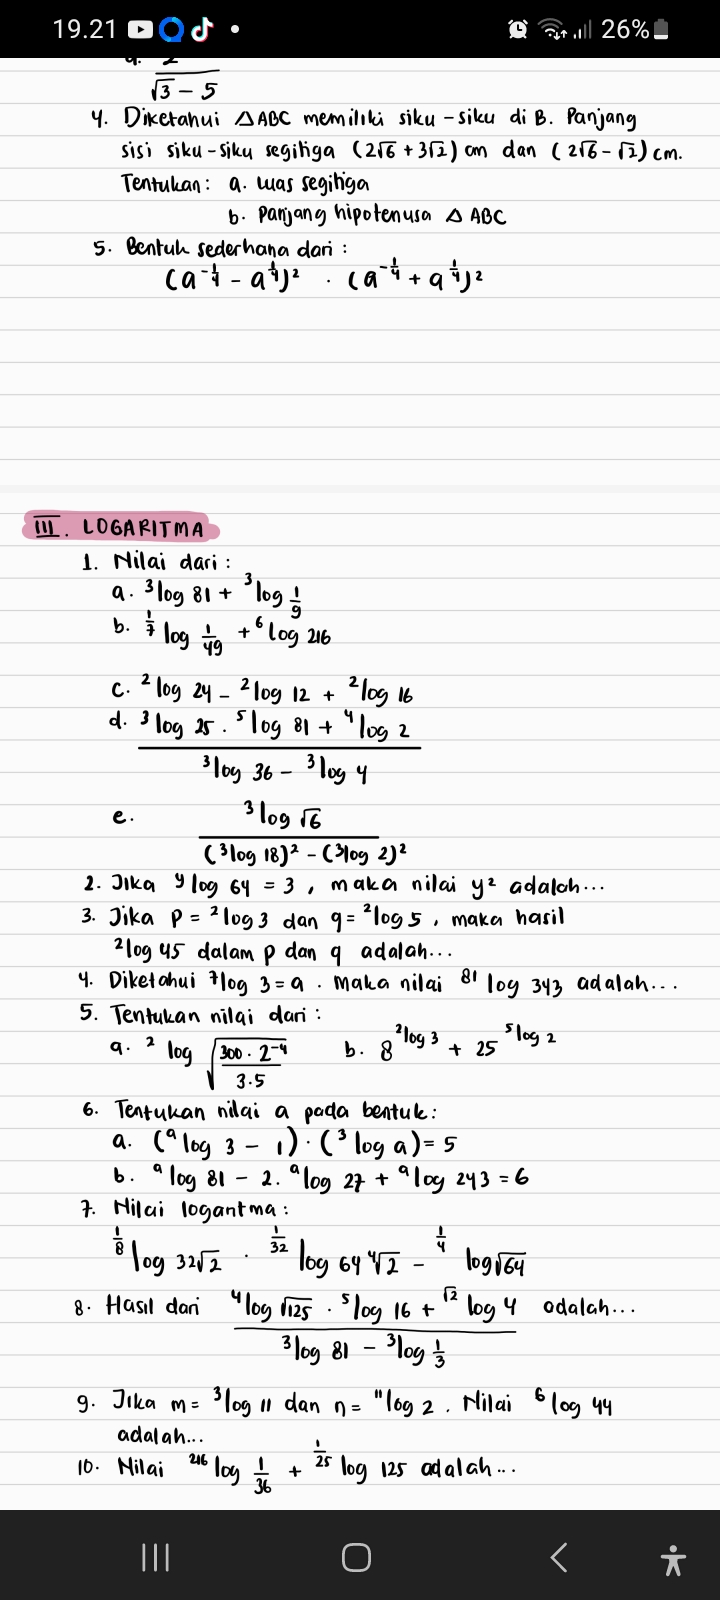 19.21 26%
a. 2
√3 - 5
4. Diketahui △ABC memiliki siku-siku di B. Panjang
sisi siku-siku segitiga (2√6 + 3√2) cm dan (2√6 - √2) cm.
Tentukan: a. luas segitiga
b. Panjang hipotenusa △ ABC
5. Bentuk sederhana dari :
(a^-1/4 - a^1/4)² . (a^-1/4 + a^1/4)²
III. LOGARITMA
1. Nilai dari :
a. ³log 81 + ³log 1/9
b. ^1/7 log 1/49 + ⁶log 216
c. ²log 24 - ²log 12 + ²log 16
d. ³log 25 . ⁵log 81 + ⁴log 2
³log 36 - ³log 4
e. ³log √6
(³log 18)² - (³log 2)²
2. Jika ʸlog 64 = 3, maka nilai y² adalah...
3. Jika p = ²log 3 dan q = ²log 5, maka hasil
²log 45 dalam p dan q adalah...
4. Diketahui ⁷log 3 = a. Maka nilai ⁸¹log 343 adalah...
5. Tentukan nilai dari :
a. ²log √(300 . 2⁻⁴ / 3.5) b. 8^²log 3 + 25^⁵log 2
6. Tentukan nilai a pada bentuk:
a. (ᵃlog 3 - 1) . (³log a) = 5
b. ᵃlog 81 - 2. ᵃlog 27 + ᵃlog 243 = 6
7. Nilai logaritma :
^1/8 log 32√2 . ^1/32 log 64 ⁴√2 - ^1/4 log √64
8. Hasil dari ⁴log √125 . ⁵log 16 + ^√2 log 4 adalah...
³log 81 - ³log 1/3
9. Jika m = ³log 11 dan n = ¹¹log 2. Nilai ⁶log 44
adalah...
10. Nilai ²¹⁶log 1/36 + ^1/25 log 125 adalah...